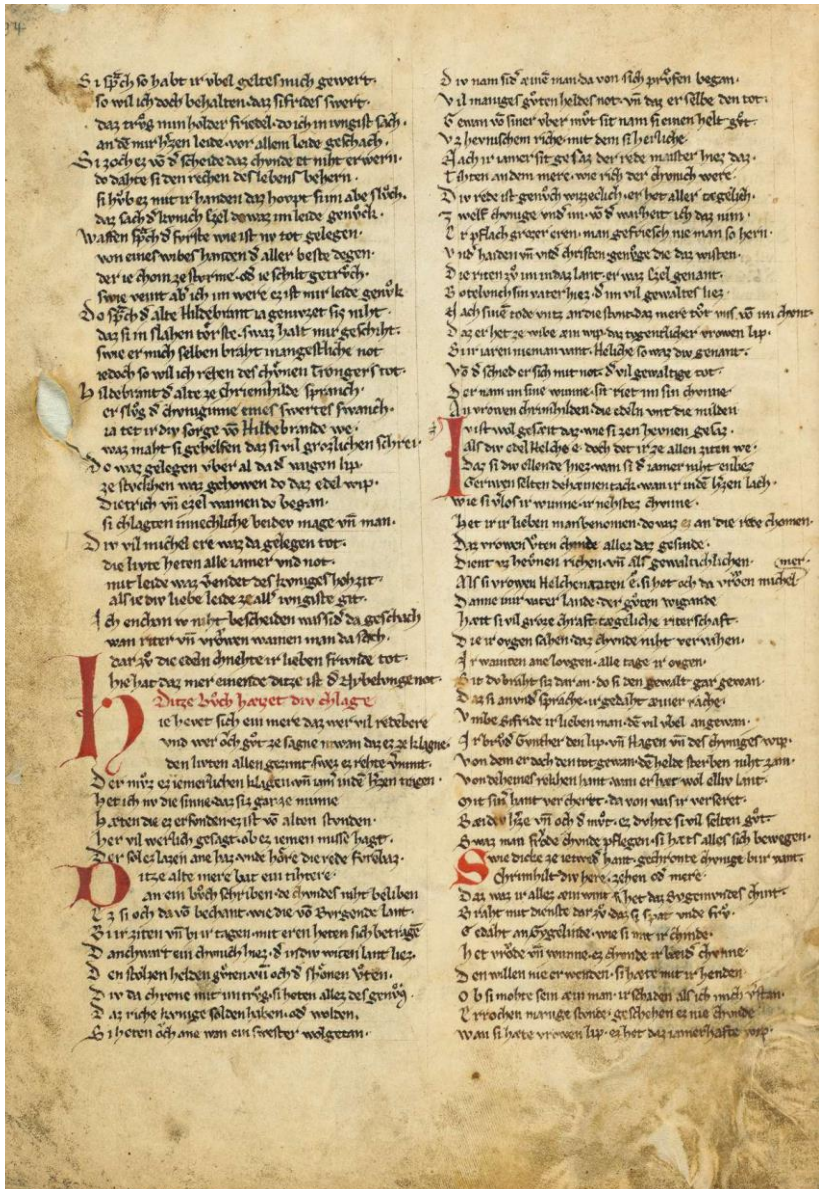 Si sp̃ch so habt ir vbel geltes mich gewert·
so wil ich doch behalten· daz sifrides swert·
daz trůg min holder friedel· do ich in ivngist sach·
an dẽ mir h̃zen leide· vor allem leide geschach·
Si zoch ez võ d̾ scheide daz chvnde et niht erwern·
do dahte si den rechen des lebens behern·
si hůb ez mit ir handen daz hovpt si im abe slůch·
daz sach d̾ kvnich Ezel do waz im leide genůck·
Waffen sp̃ch d̾ fvrste wie ist nv tot gelegen·
von eines wibes handen d̾ aller beste degen·
der ie chom ze stvrme· od̾ ie schilt getrůch·
swie veint ab̾ ich im were ez ist mir leide genůk
Do sp̃ch d̾ alte Hildebrant ia genivzet siz niht
daz si in slahen torste· swaz halt mir geschiht·
swie er mich selben braht in angestliche not
iedoch so wil ich rechen des chvnen Trongers tot·
Hildebrant d̾ alte ze chriemhilde spranch·
er slůg d̾ chvniginne eines swertes swanch·
ia tet ir div sorge võ Hildebrande we·
waz maht si gehelfen daz si vil grozlichen schrei·
Do waz gelegen vber al da d̾ vaigen lip·
ze stvchen waz gehowen do daz edel wip·
Dietrich vñ ezel wainen do began·
si chlagten innechliche beider mage vñ man·
Div vil michel ere waz da gelegen tot·
die livte heten alle iamer vnd not·
mit leide waz v̾endet des kvniges hohzit·
als ie div liebe leide ze all̾ ivngiste git·
Ich enchan iv niht bescheiden waz sid̾ da geschach
wan riter vñ vrowen wainen man da sach·
dar zů die edeln chnehte ir lieben frivnde tot·
hie hat daz mer ein ende ditze ist d̾ Nybelunge not·
Ditze bůch haizet div chlage
Hie hevet sich ein mere daz wer vil redebere
vnd wer ǒch gůt ze sagne niwan daz ez ze klagne·
den livten allen gezimt swer ez rehte v̾nimt·
Der mvz ez iemerlichen klagen· vñ iam̾ in dẽ h̃zen tragen·
Het ich nv die sinne· daz siz gar ze minne
Hæten die ez erfvnden· ez ist võ alten stvnden·
Her vil werlich gesagt· ob ez iemen misse hagt·
Der sol ez lazen ane haz vnde hôre die rede fvrebaz·
Ditze alte mere bat ein tihtere·
an ein bůch schriben· de chvndes niht beliben
Ez si och da võ bechant· wie die võ Bvrgende lant·
Bi ir ziten vñ bi ir tagen· mit eren heten sich betragẽ
Danchwart ein chvnich hiez· d̾ in div witen lant liez·
Den stolzen helden gůten· vñ och d̾ shônen Vten·
Div da chrone mit im trůg· si heten allez des genůg
Daz riche kvnige solden haben· od̾ wolden·
Si heten ǒch ane wan ein swester wolgetan·
Div nam sid̾ æinẽ man· da von sich průfen began·
Vil maniges gůten heldes not· vñ daz er selbe den tot·
Gewan võ siner vber mvt sit nam si einen helt gůt·
Vz hevnischem riche· mit dem si herliche
Nach ir iamer sit gesaz der rede maister hiez daz·
Tihten an dem mere· wie rich der chvnich were
Div rede ist genůch wizzechlich· er het aller tægelich·
Zwelf chvnige vnd̾ im· võ d̾ warheit ich daz nim·
Er pflach grozer eren· man gefriesch nie man so hern·
Vnd̾ haiden vñ vnd̾ christen genůge die daz wisten·
Die riten zů im in daz lant· er waz Ezel genant·
Botelunch sin vater hiez· d̾ im vil gewaltes liez·
Nach sinẽ tode vntz an die stvnt· daz mere tůt vns võ im chvnt·
Daz er het ze wibe æin wip· daz tvgentlicher vrowen lip·
Bi ir iaren nieman vant· Heliche so waz div genant·
Võ d̾ schied er sich mit not· d̾ vil gewaltige tot·
Der nam im sine wunne· sit riet im sin chvnne
An vrowen chrimhilden· die edeln vnt die milden
Iv ist wol gesæit daz· wie si zen hevnen gesaz·
als div edel Helche e· doch det ir ze allen ziten we·
Daz si div ellende hiez· wan si d̾ iamer niht enliez
Gerůwen selten dehæinen tach· wan ir in dẽ h̃zen lach·
wie si v̾los ir wunne· ir nehster chvnne·
Het ir ir lieben man benomen· do waz ez an die zite chomen·
Daz vrowen Vten chinde allez daz gesinde·
Dient vz hevnen richen· vñ als gewaltichlichen·
Als si vrowen Helchen taten ê· si het och da vrǒen michel mer·
Danne in ir vater lande· der gůten wigande
Hætt si vil groze chraft· tægeliche riterschaft·
Die ir ovgen sahen· daz chvnde niht vervahen·
Ir wainten ane lovgen· alle tage ir ovgen·
Sit dv braht dar an· do si den gewalt gar gewan·
Daz si an vnd̾ spræche· ir gedaht æiner rache·
Vmbe Sifride ir lieben man· dẽ vil vbel angewan·
Ir brůd̾ Gvnther den lip· vñ Hagen vñ des chvniges wip·
Von dem er doch den tot gewan· dẽ helde sterben niht zam·
Von deheines rekhen hant· wan er hæt wol elliv lant·
Mit sin̾ hant vercheret· da von waz ir verseret·
Bæidev h̃ze vñ och d̾ mǒt· ez dvhte si vil selten gůt
Swaz man frǒde chvnde pflegen· si hæts alles sich bewegen·
Swie dicke ze ietwed̾ hant· gechronte chvnige bi ir vant·
Chrimhilt div here· zehen od̾ mere·
Daz waz ir allez æin wint v̾het daz Sygemvndes chint·
Braht mit dienste dar zů· daz si spat vnde frů·
Gedaht an Sygelinde· wie si mit ir chinde·
Het vrôde vñ wunne· ez chvnde ir beid̾ chvnne·
Den willen nie erwenden· si hæte mit ir henden
Ob si mohte sein æin man· ir schaden als ich mich v̾stan·
Errochen manige stvnde· geschehen ez nie chvnde
Wan si hæte vrowen lip· ez het daz iamerhafte wip·